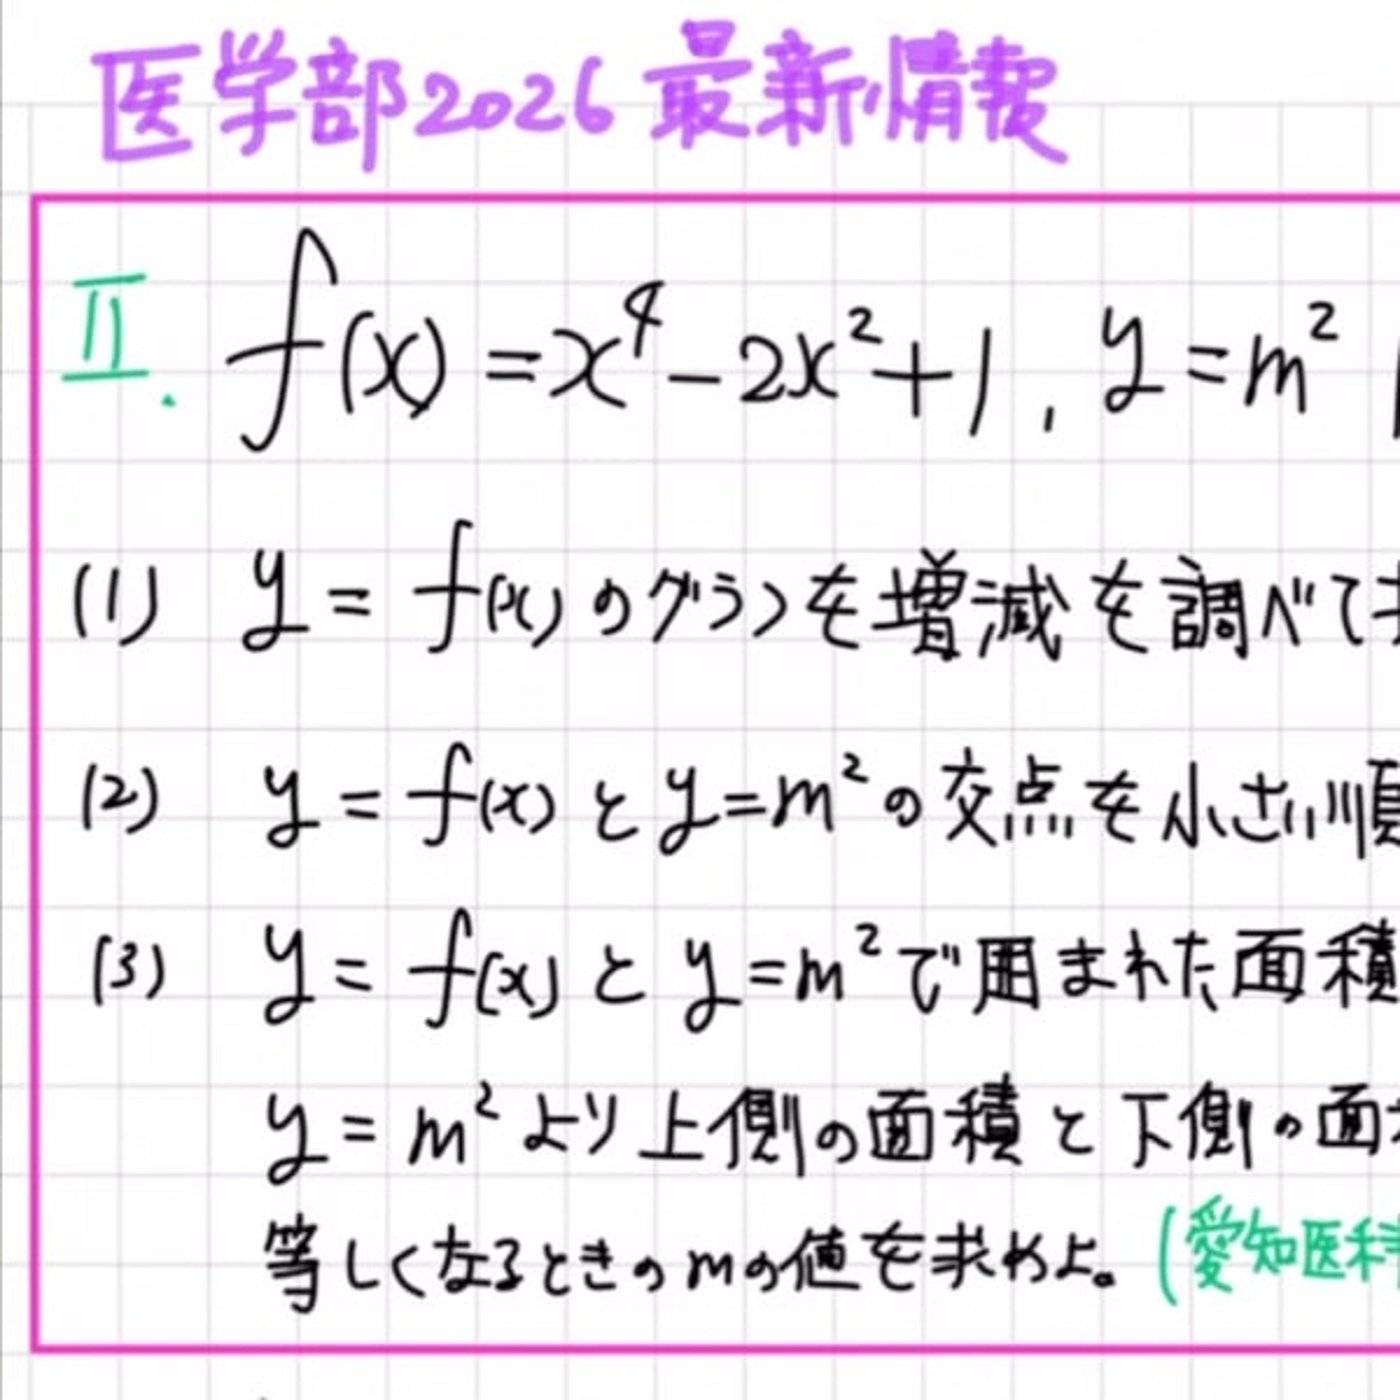 医学部2026最新情報
II. f(x)=x⁴-2x²+1, y=m²
(1) y=f(x)のグラフを増減を調べて
(2) y=f(x)とy=m²の交点を小さい順
(3) y=f(x)とy=m²で囲まれた面積
y=m²より上側の面積と下側の面
等しくなるときのmの値を求めよ。(愛知医科